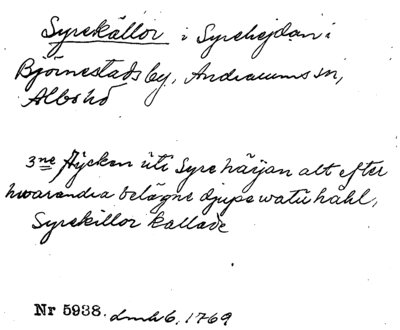 Syrekällor i Syrehejdan i
Björnestads by, Andrarums sn,
Albo hd
3ne stycken uti Syre härjan alt efter
hwarandra belägne djupe watu hahl,
Syrekillor kallade
Nr 5938. lmh6, 1769